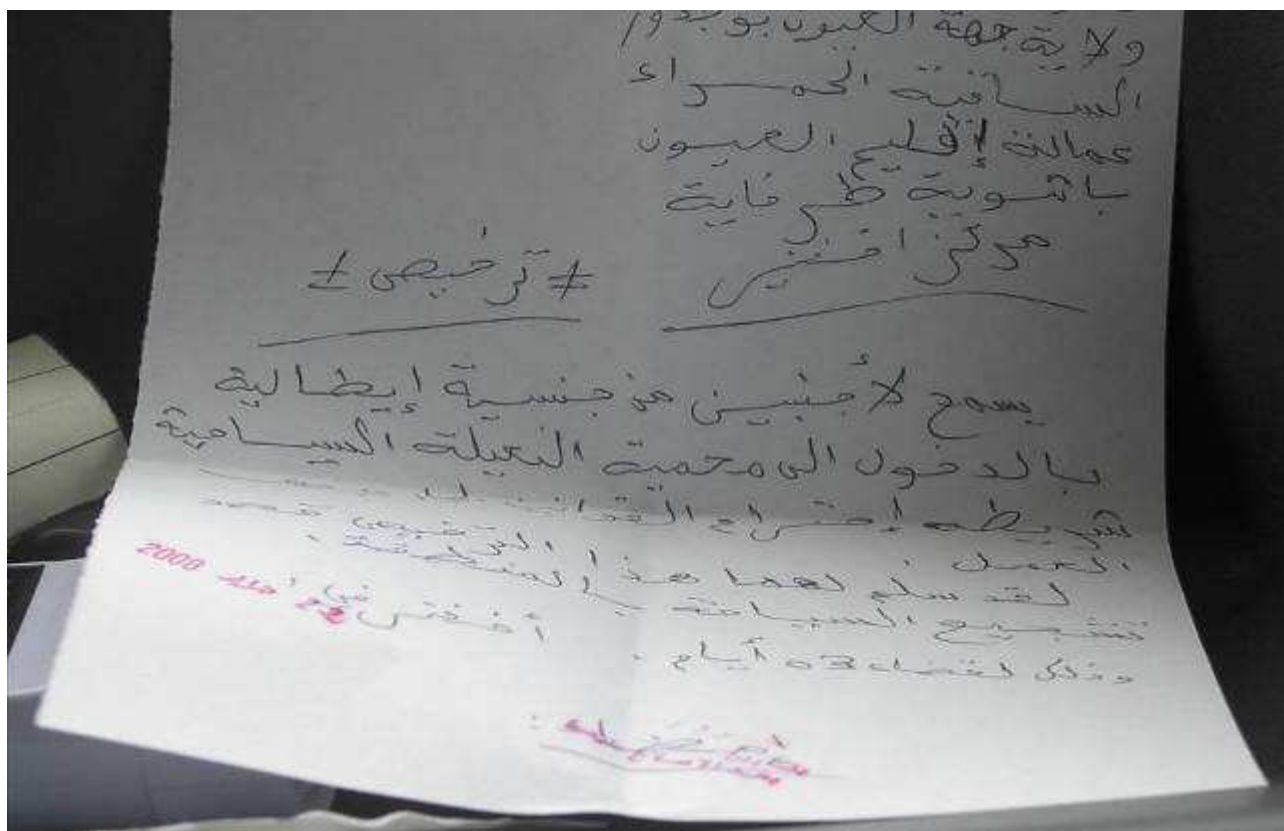 ولاية جهة العيون بوجدور
الساقية الحمراء
عمالة إقليم العيون
باشوية طرفاية
مركز اخفنير
# ترخيص #
يسمح لأجنبين من جنسية إيطالية
بالدخول الى محمية النعيلة السياحية
شريطة إحترام
العمل.
لقد سلم لهما هذا الترخيص قصد
تشجيع السياحة بالمنطقة.
وذلك لقضاء 03 أيام.
أخفنير في 22 2008